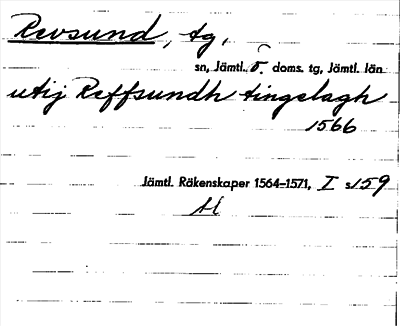 Revsund, tg,
sn, Jämtl. ö. doms. tg, Jämtl. län
utij Reffsundh tingelagh
1566
Jämtl. Räkenskaper 1564–1571, I s159